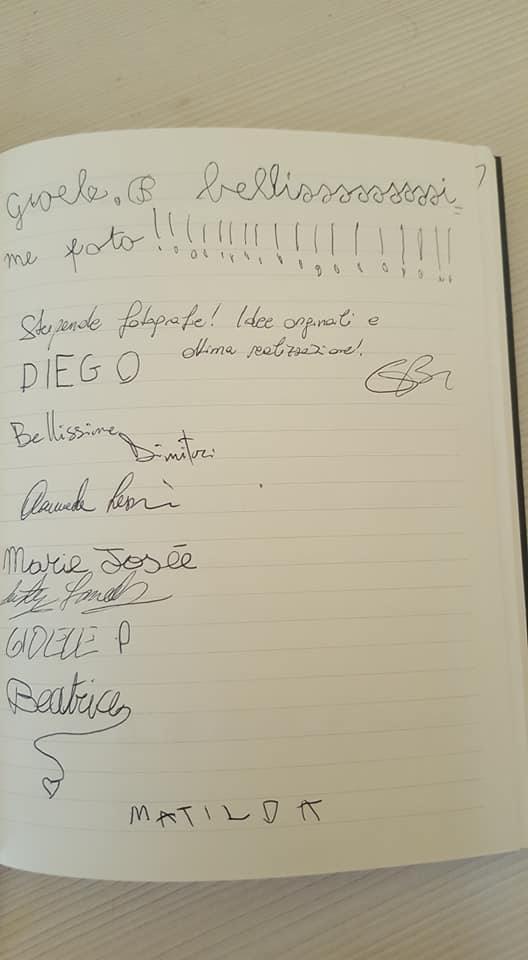 Gioele. B bellissssssssi_
me foto !!!!!!!!!!!!!!!!!!!!
Stupende fotografie! Idee originali e
ottima realizzazione!
DIEGO
Bellissime
Dimitri
Marie Josée
GIOELE P
Beatrice
MATILDA